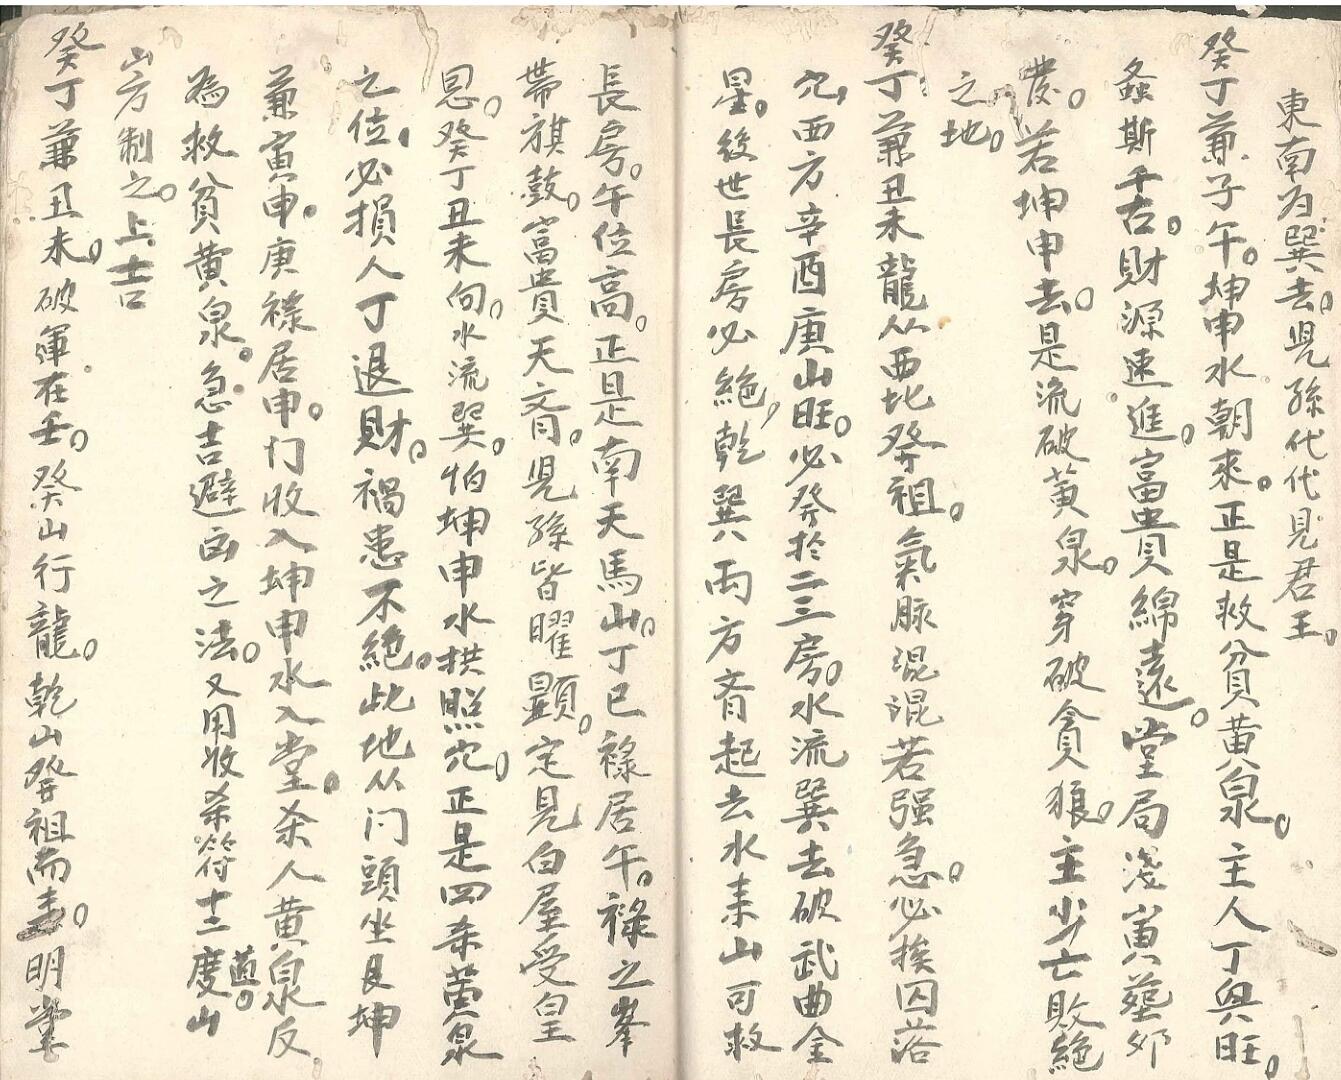 東南为巽去。児孫代代見君王。
癸丁兼子午。坤申水朝來。正是救貧黄泉。主人丁興旺。
螽斯千古。財源速進。富貴綿遠。堂局淺寅葬卯
發。若坤申去。是流破黄泉。穿破貪狼。主少亡敗絕
之地。
癸丁兼丑未龍从西北發祖。氣脉混混若强急。必挨囚落
穴，西方辛酉庚山旺。必發於二三房。水流巽去破武曲金
星。後世長房必絕，乾巽八兩方齊起去水来山可救
長房。午位高。正是南天馬山。丁巳祿居午。祿之峯
帶旗鼓。富貴天齊。児孫皆曜顯。定見白屋受皇
恩。癸丁丑未向。水流巽。怕坤申水拱照穴。正是四杀黄泉
之位。必損人丁退財。禍患不絕。此地从门頭坐艮坤
兼寅申。庚祿居申。门收入坤申水入堂。杀人黄泉反
為救貧黄泉。急吉避凶之法。又用收杀符十二度山
道。
山方制之。上吉
癸丁兼丑未。破軍在壬。癸山行龍。乾山發祖而来。明堂